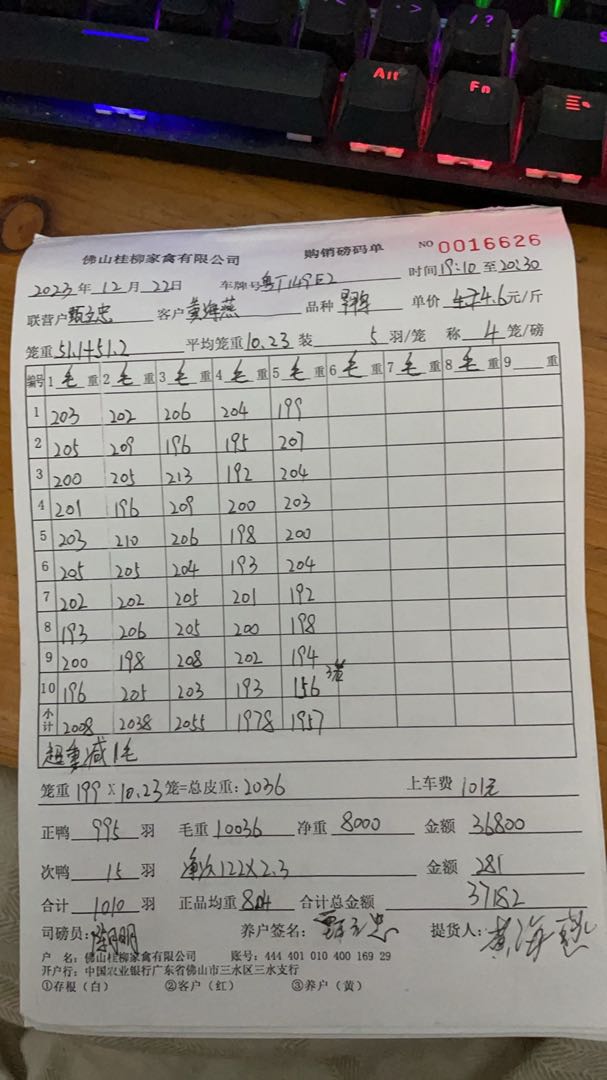 Alt
Fn
/ ?
佛山桂柳家禽有限公司 购销磅码单 NO 0016626
2023年12月22日 车牌号粤T149E2 时间19:10至20:30
联营户甄立忠 客户黄海燕 品种 单价4.6元/斤
笼重51.1+51.2 平均笼重10.23装 5 羽/笼 称 4 笼/磅
编号 1毛重 2毛重 3毛重 4毛重 5毛重 6毛重 7毛重 8毛重 9 重
1 203 202 206 204 199
2 205 209 196 195 207
3 200 205 213 192 204
4 201 196 209 200 203
5 203 210 206 198 200
6 205 205 204 193 204
7 202 202 205 201 192
8 193 206 205 200 198
9 200 198 208 202 194
10 196 205 203 193 156 3笼
小计 2008 2038 2055 1978 1957
超重减1毛
笼重199×10.23笼=总皮重:2036 上车费101元
正鸭 995 羽 毛重10036 净重8000 金额36800
次鸭 15 羽 122×2.3 金额 281
合计1010羽 正品均重8.04 合计总金额 37182
司磅员: 养户签名:甄立忠 提货人:黄海燕
户 名:佛山桂柳家禽有限公司 账号:444 401 010 400 169 29
开户行:中国农业银行广东省佛山市三水区三水支行
①存根(白) ②客户(红) ③养户(黄)